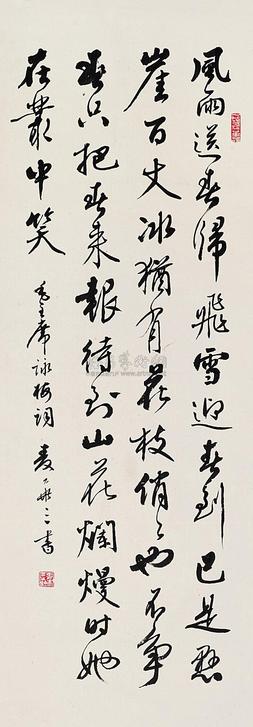 風雨送春歸飛雪迎春到已是懸
崖百丈冰猶有花枝俏〻也不爭
春只把春來報待到山花爛熳時她
在叢中笑
毛主席詠梅詞 麦華三書